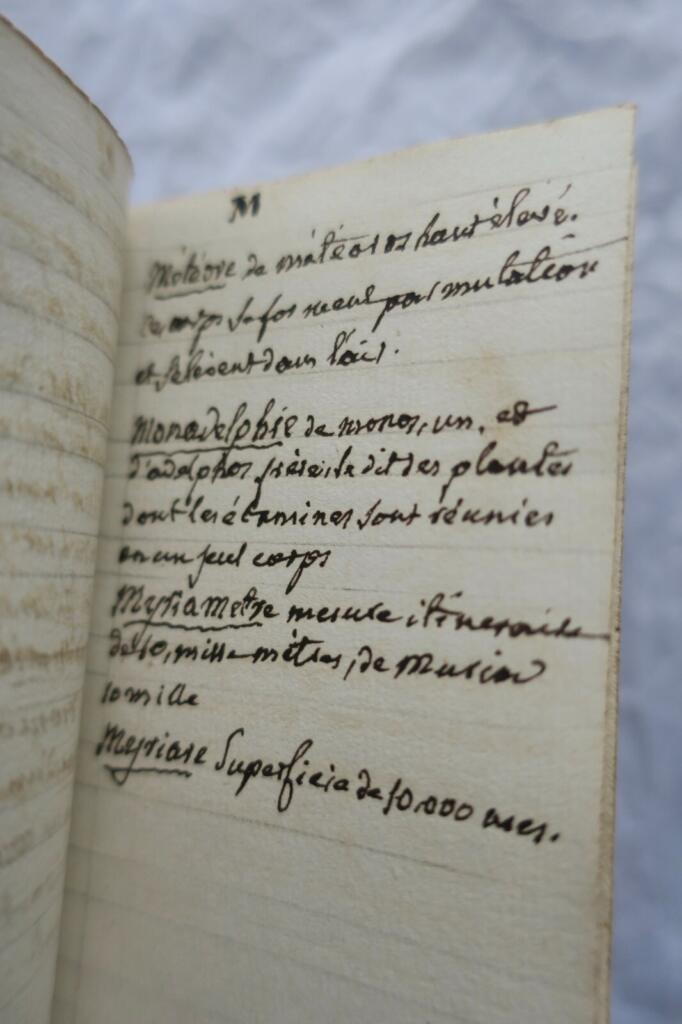 M
Météore de météoros haut élevé.
ce corps se forment par mutation
et s'élèvent dans l'air.
Monadelphie de monos, un, et
d'adelphos, frère, se dit des plantes
dont les étamines sont réunies
en un seul corps
Myriametre mesure itineraire
de 10, mille mètres, de
10 mille
Myriare Superficie de 10.000 ares.